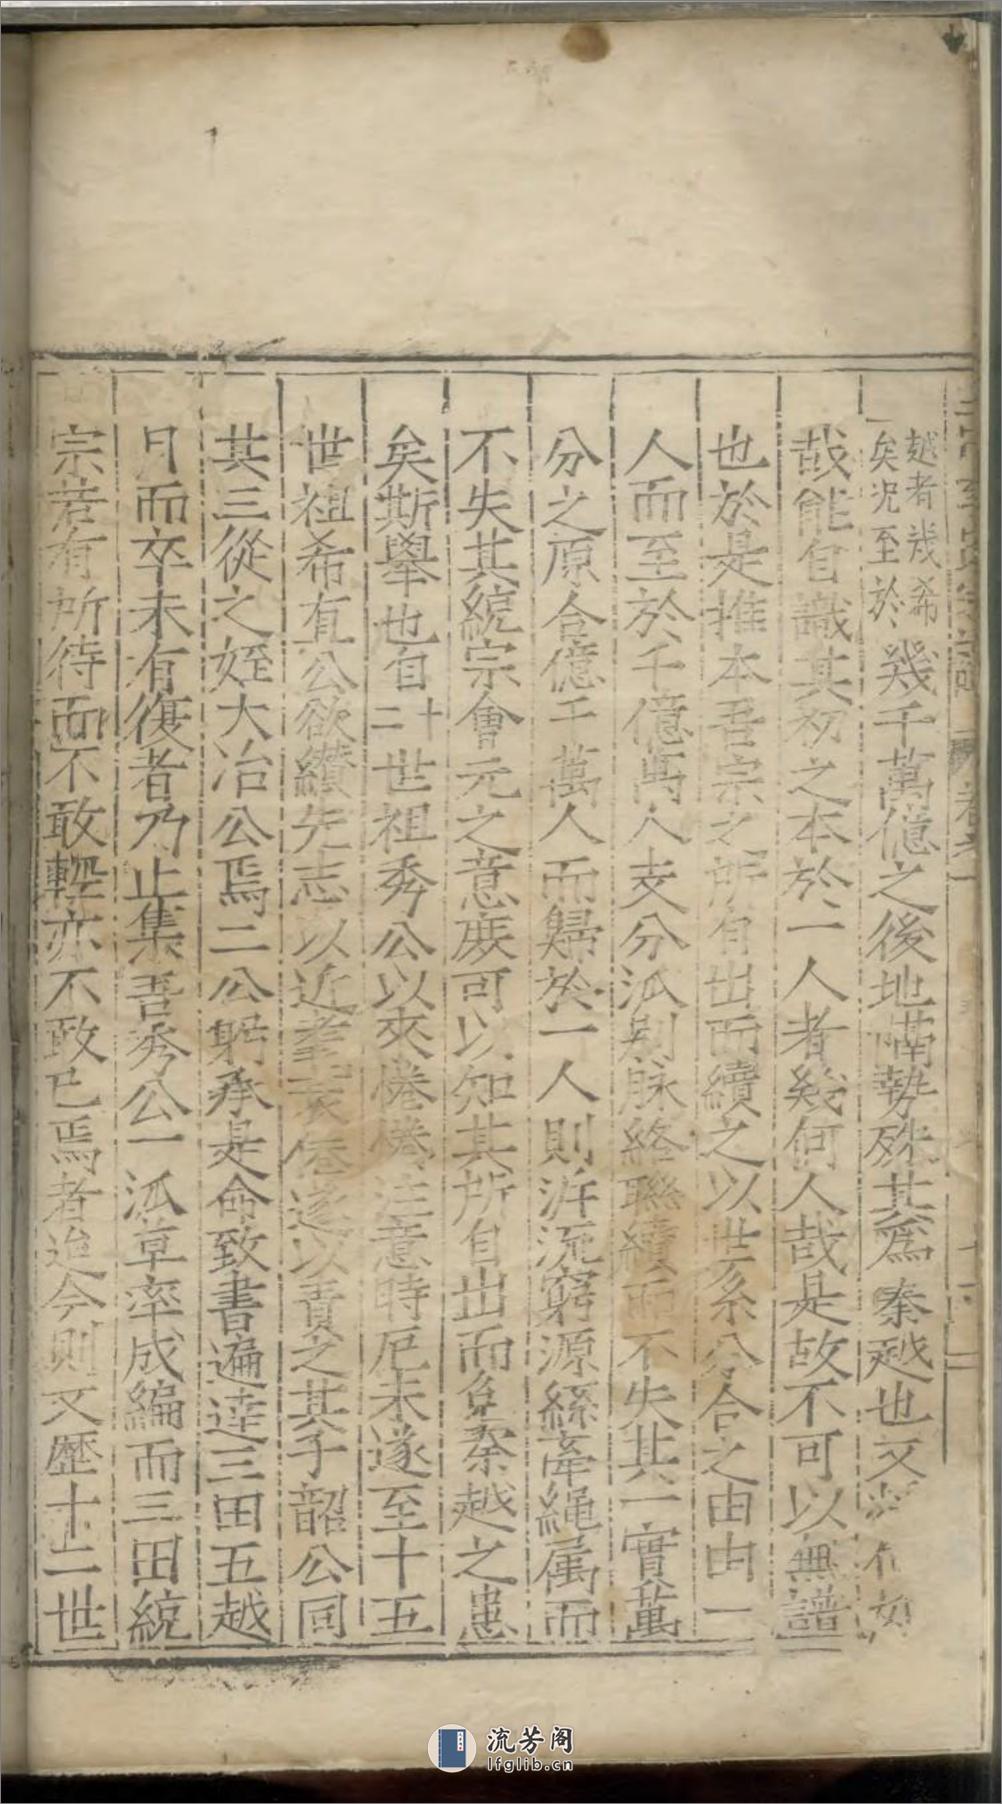 越者幾希
矣况至於
幾千萬億之後地隔勢殊其爲秦越也又
哉能自識其初之本於一人者幾何人哉是故不可以無譜
也於是推本吾宗之所自出而續之以世系分合之由由一
人而至於千億萬人支分派别脉絡聯續而不失其一實萬
分之原合億千萬人而歸於一人則泝流窮源絲牽繩属而
不失其統宗會元之意庶可以知其所自出而免秦越之患
矣斯舉也自二十世祖秀公以來惓惓注意時厄未遂至十五
世祖希直公欲纘先志以近耄遂以責之其子韶公同
其三從之姪大冶公焉二公躬承是命致書遍達三田五越
月而卒未有復者乃止集吾秀公一派草率成編而三田統
宗若有所待而不敢輕亦不敢已焉者迨今則又歷十二世
流芳阁
lfglib.cn